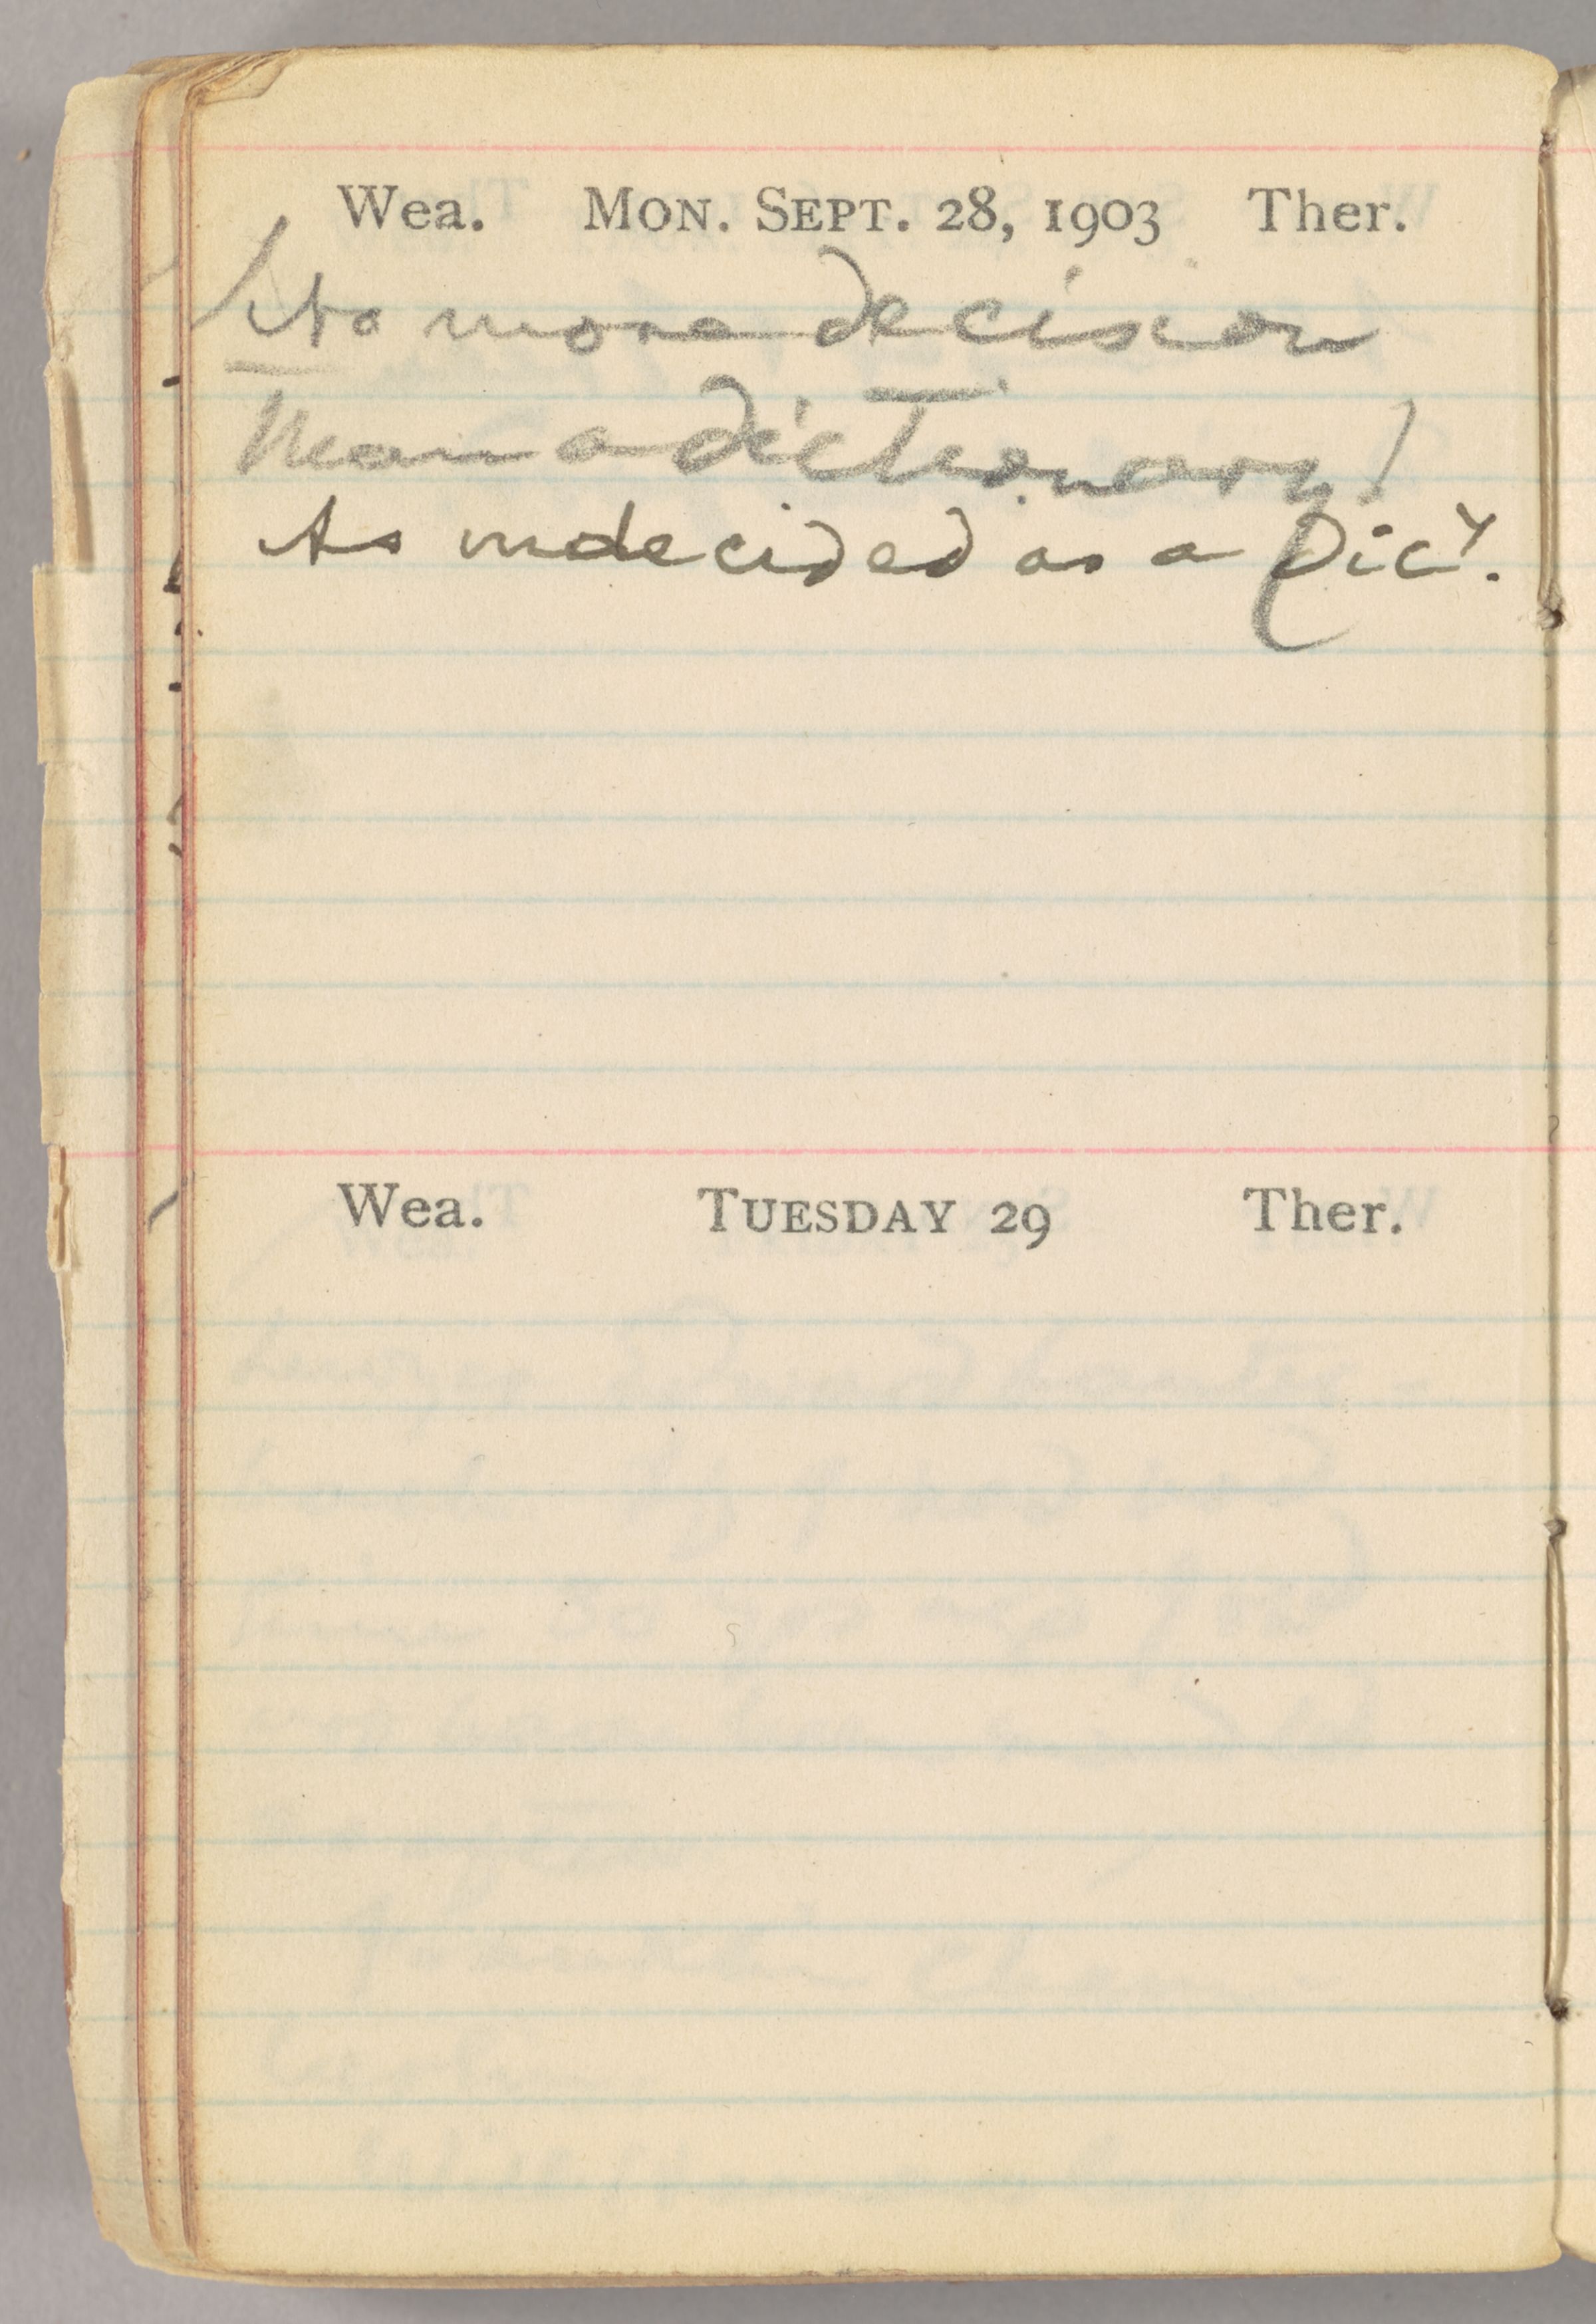 Wea. MON. SEPT. 28, 1903 Ther.
No more decision
than a dictionary!
As undecided as a Dicy.
Wea. TUESDAY 29 Ther.